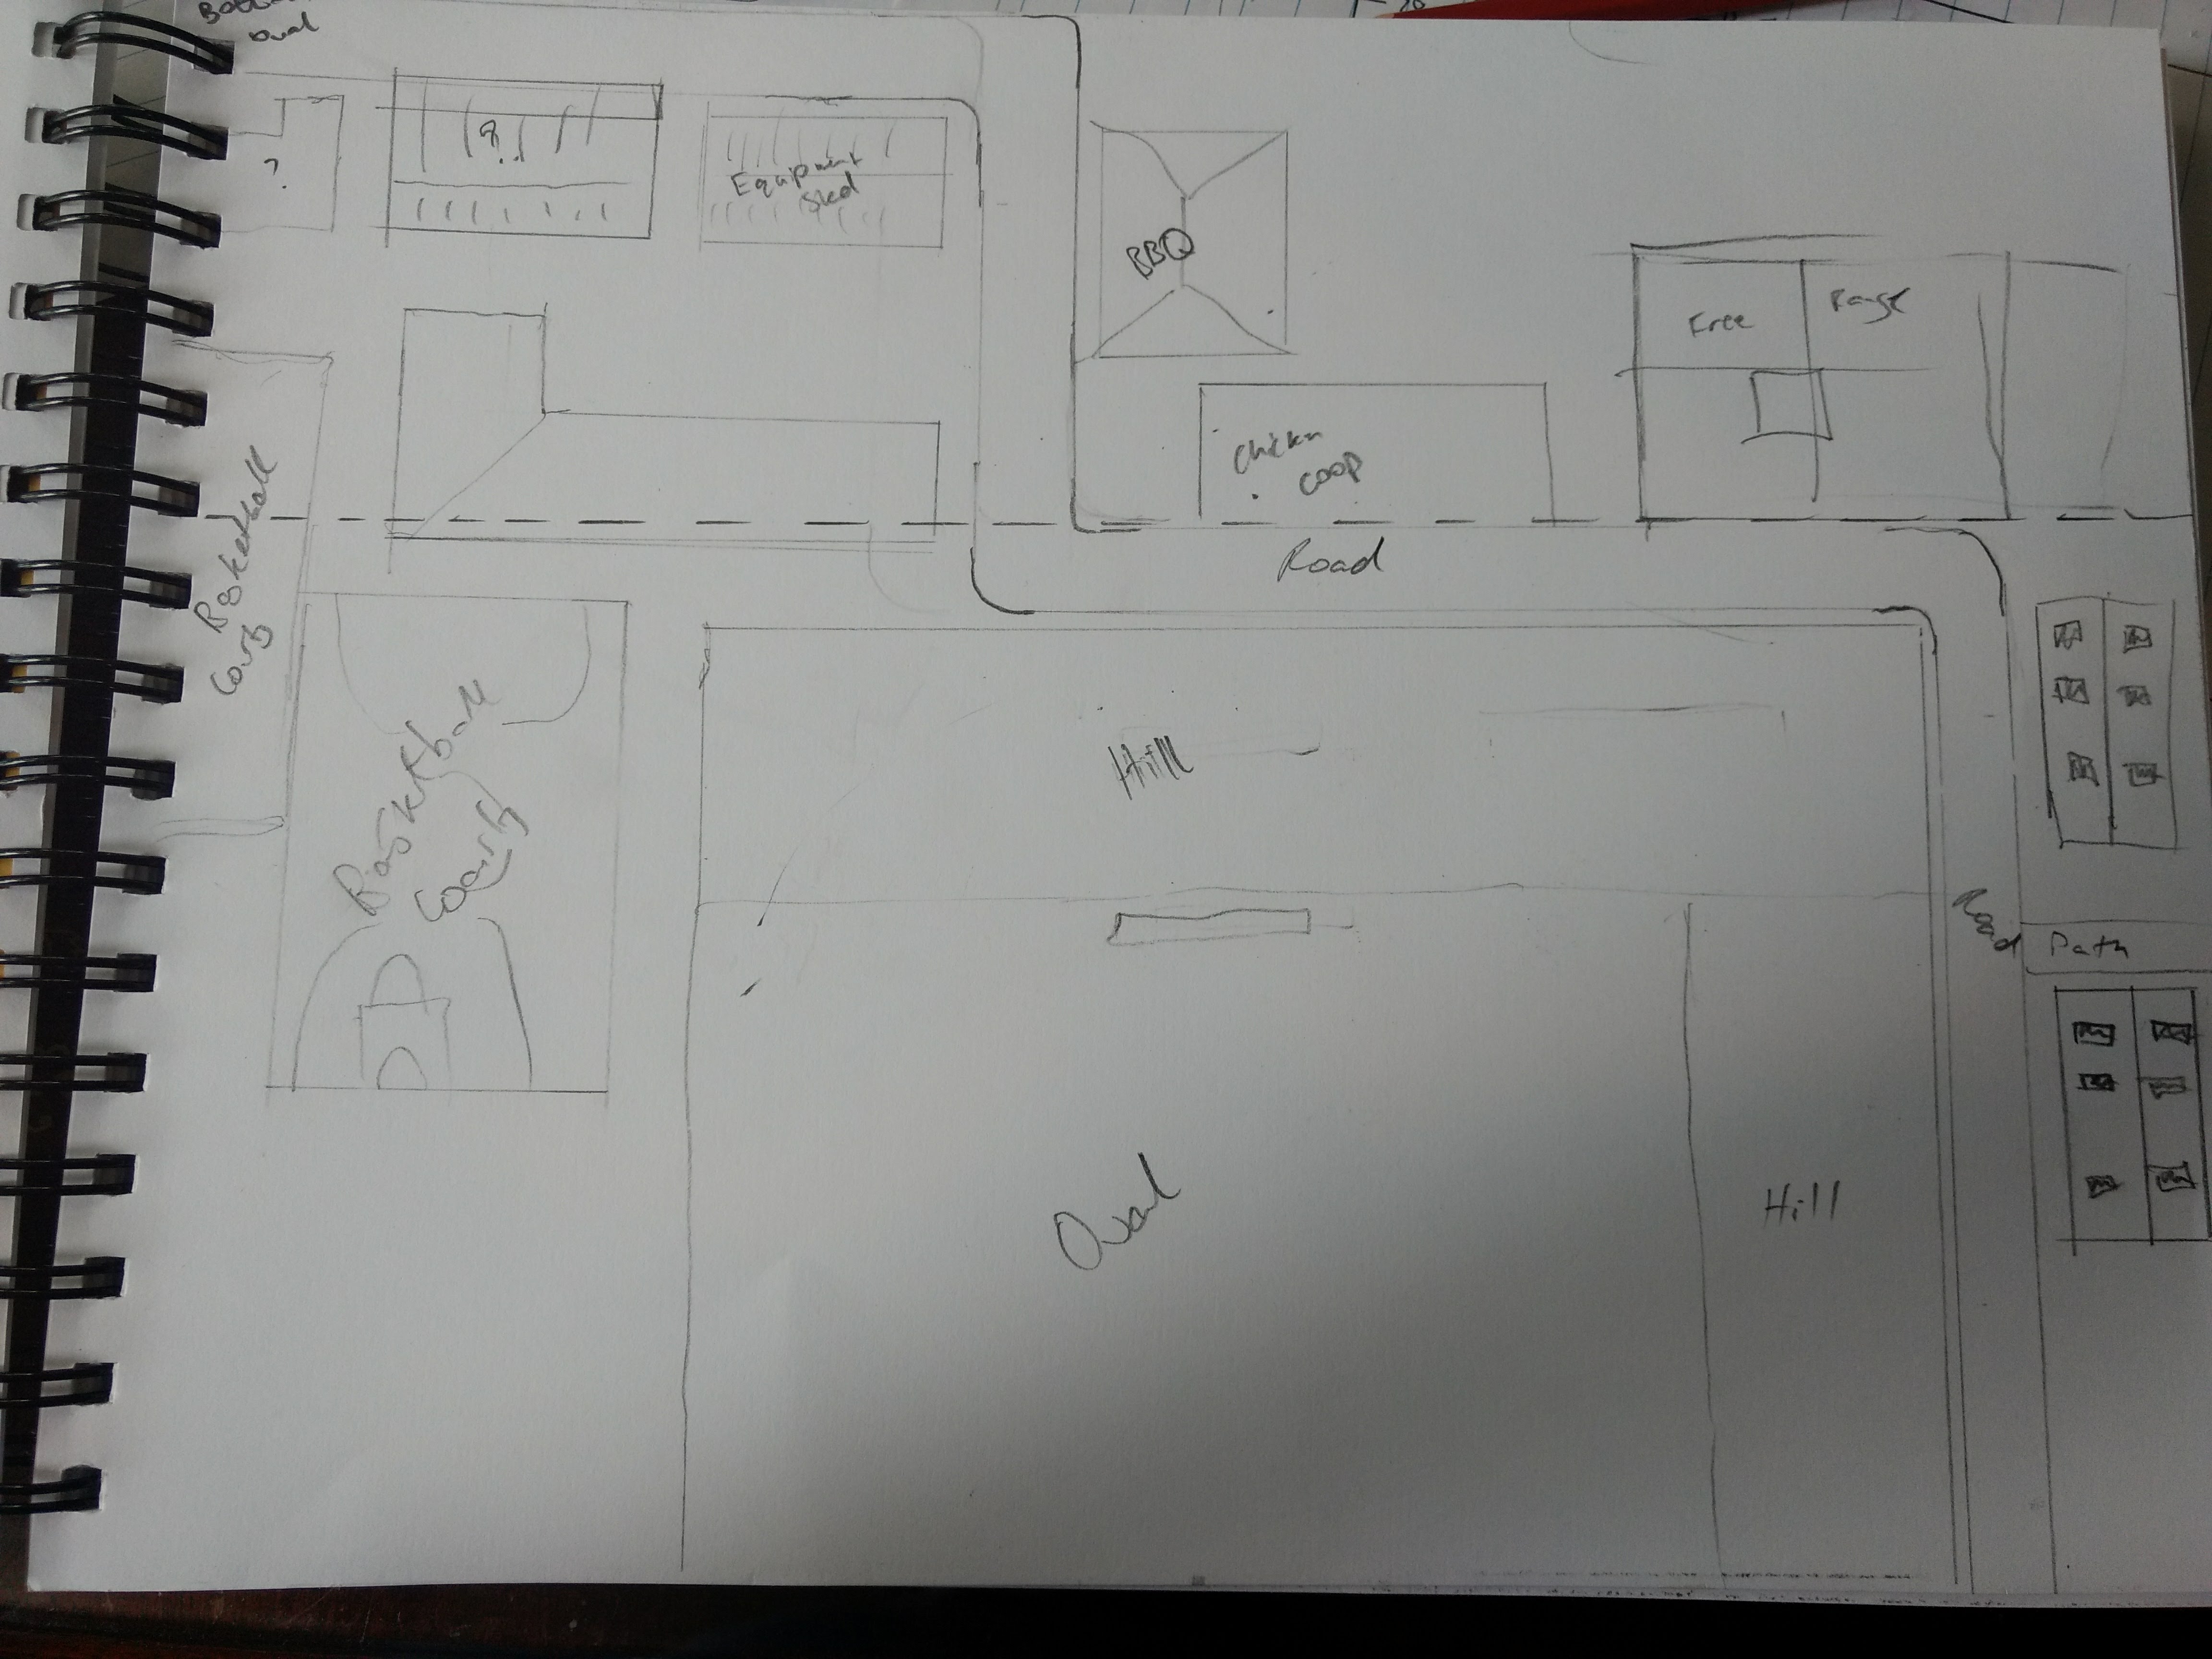 Oval
?
?
Equipment
Shed
BBQ
Free
Range
Chickn
coop
Road
Basketball
Court
Basketball
Court
Hill
Road
Path
Oval
Hill